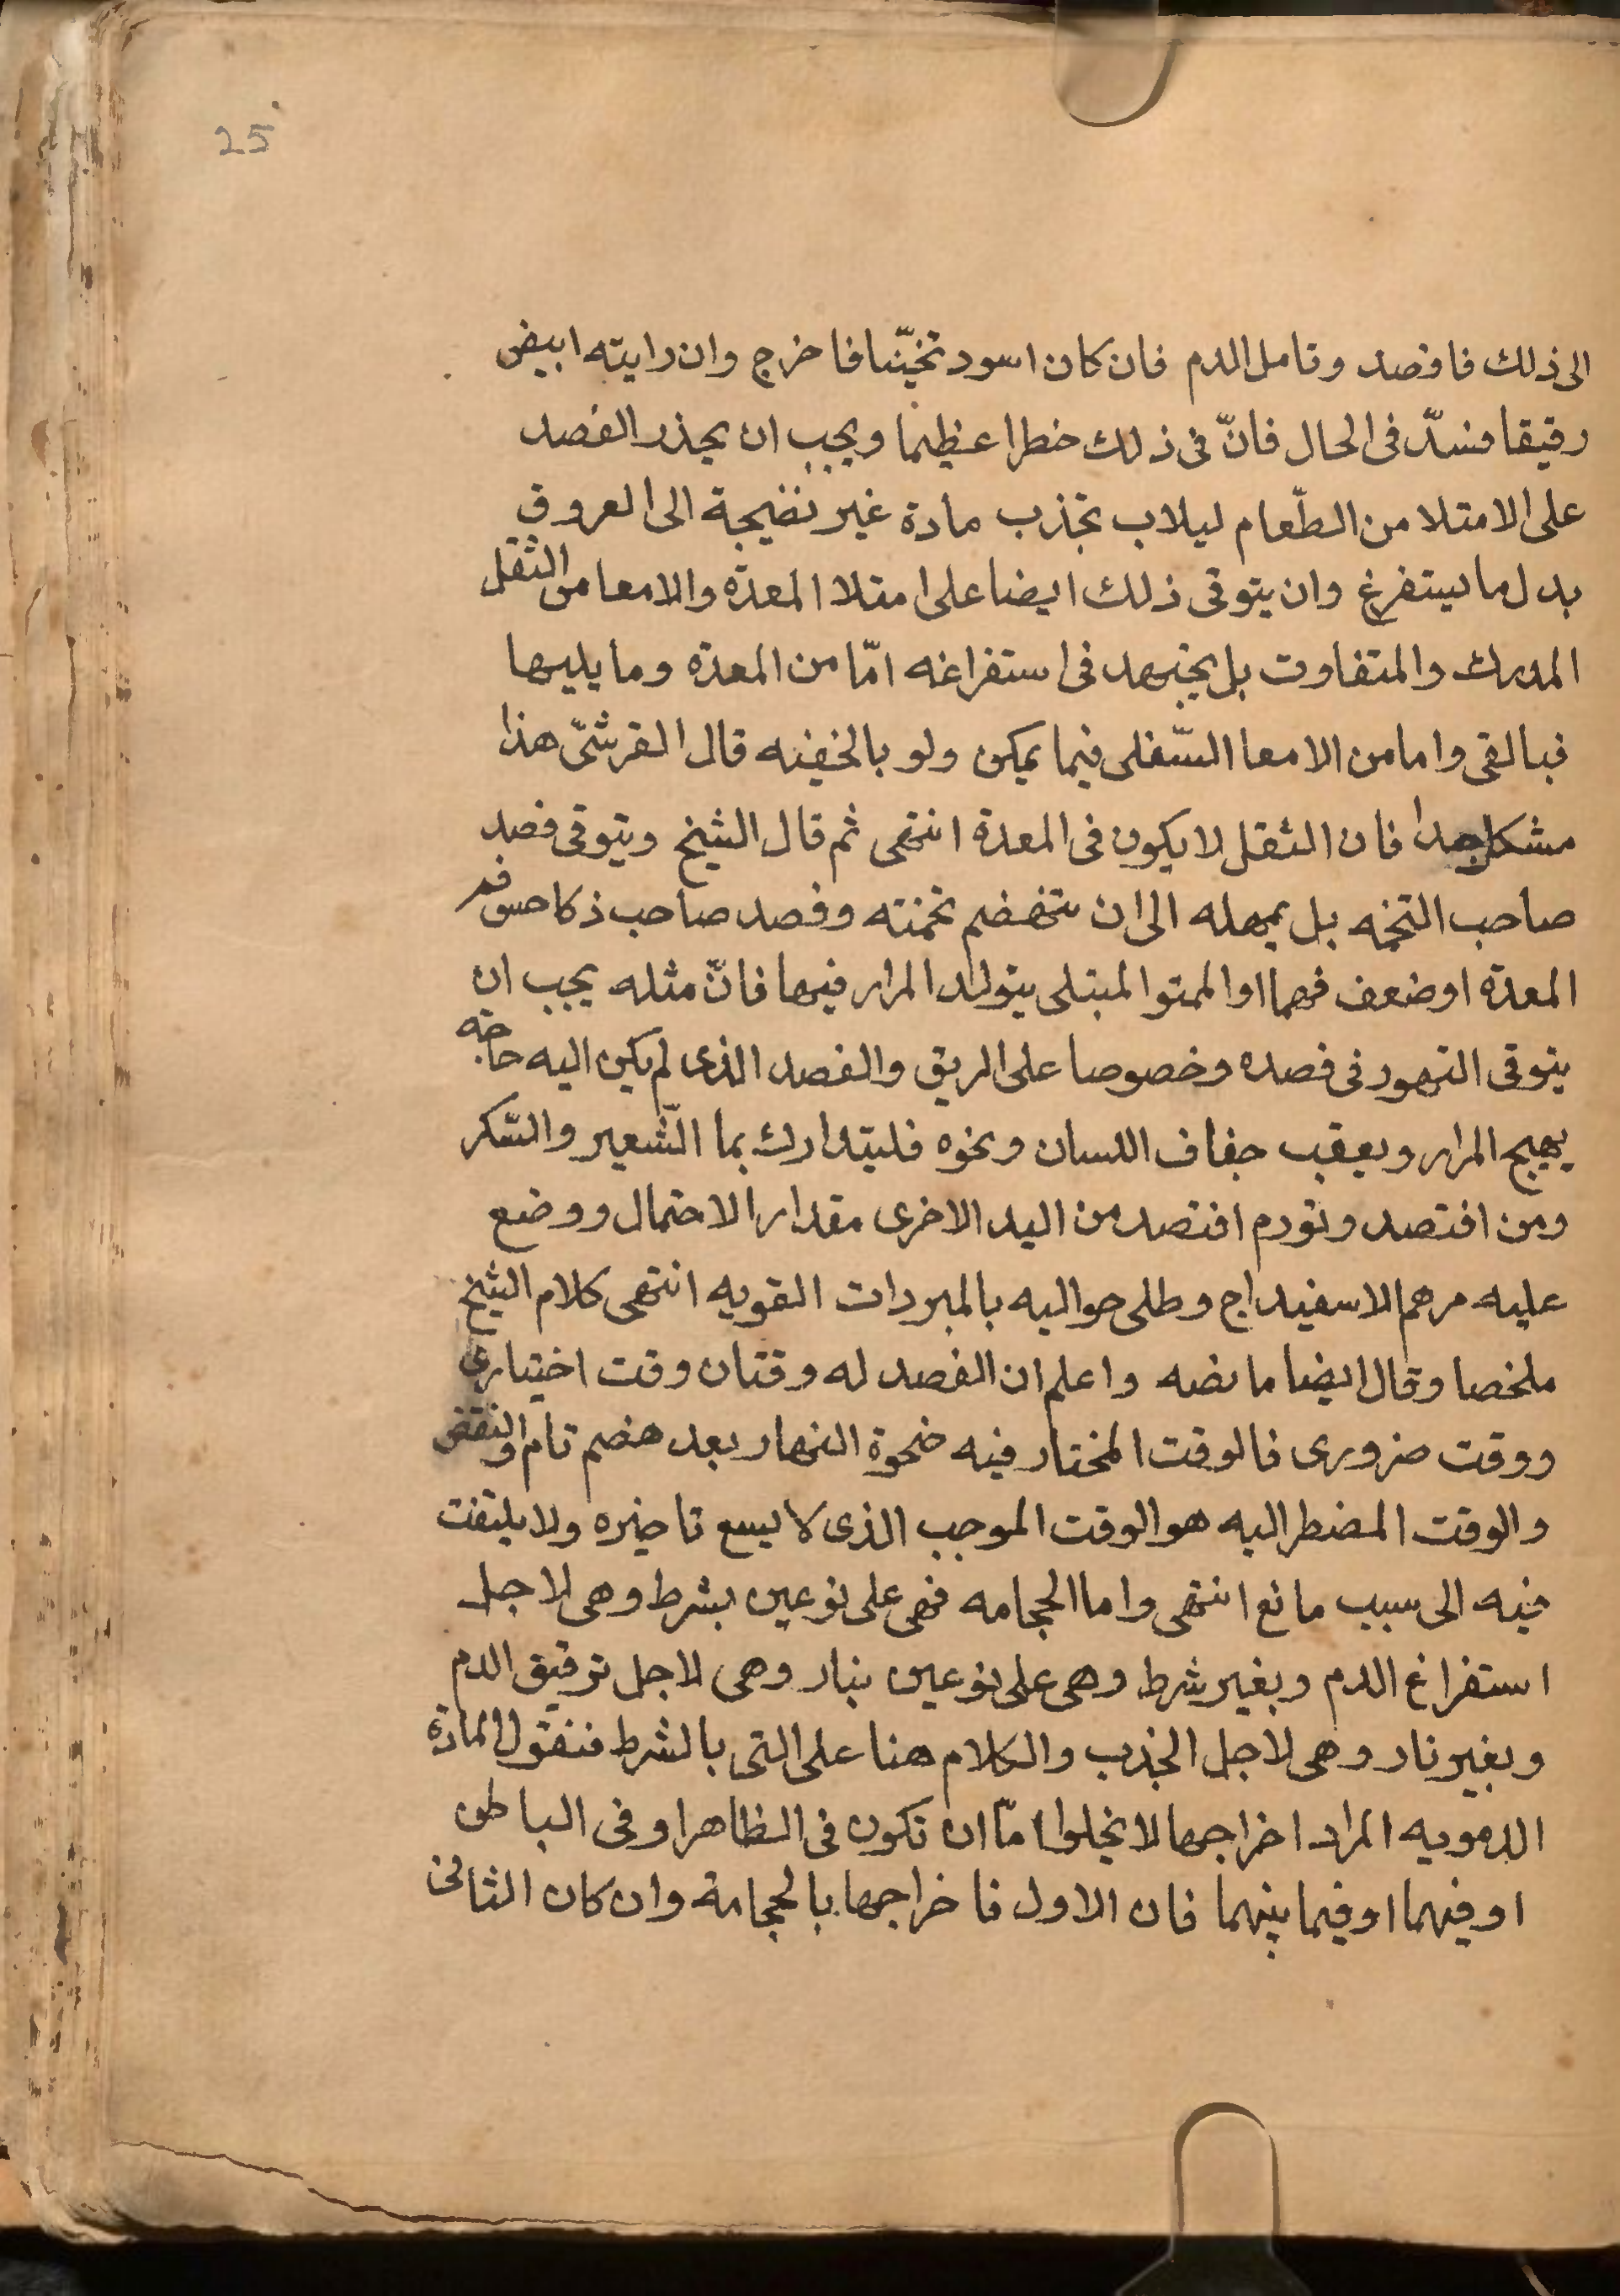 25
الى ذلك فافصد وتامل الدم فان كان اسود تخينّا فاخرج وان رايته ابيض
رقيقا فسدّ فى الحال فانّ فى ذلك خطرا عظيما ويجب ان يحذر الفصد
على الامتلا من الطّعام ليلاب تجذب مادة غير نضيجة الى العروق
بدل ما يستفرغ وان يتوقى ذلك ايضا على امتلا المعدة والامعا من الثقل
المدرك والمتفاوت بل يجتهد فى استفراغه امّا من المعدة وما يليها
فبالقى واما من الامعا السّفلى فيما يمكن ولو بالحقنه قال القرشىّ هذا
مشكل جدا فان الثقل لا يكون فى المعدة انتهى ثم قال الشيخ ويتوقى فصد
صاحب التخمه بل يمهله الى ان تنهضم تخمته وفصد صاحب ذكا حس فم
المعدة او ضعف فمها او الممتوا المبتلى بتولد المرار فيها فانّ مثله يجب ان
يتوقى التهور فى فصده وخصوصا على الريق والفصد الذى لم يكن اليه حاجه
يهيج المرار ويعقب جفاف اللسان ونحوه فليتدارك بما الشّعير والسّكر
ومن افتصد وتورم افتصد من اليد الاخرى مقدار الاحتمال ووضع
عليه مرهم الاسفيداج وطلى حواليه بالمبردات القويه انتهى كلام الشيخ
ملخصا وقال ايضا ما نصه واعلم ان الفصد له وقتان وقت اختيارى
ووقت ضرورى فالوقت المختار فيه ضحوة النهار بعد هضم تام والنقض
والوقت المضطر اليه هو الوقت الموجب الذى لا يسع تاخيره ولا يلتفت
فيه الى سبب مانع انتهى واما الحجامه فهى على نوعين بشرط وهى لاجل
استفراغ الدم وبغير شرط وهى على نوعين بنار وهى لاجل ترقيق الدم
وبغير نار وهى لاجل الجذب والكلام هنا على التى بالشرط فنقول المادة
الدمويه المراد اخراجها لا يخلوا امّا ان تكون فى الظاهر او فى الباطن
او فيهما او فيما بينهما فان الاول فاخراجها بالحجامة وان كان الثانى